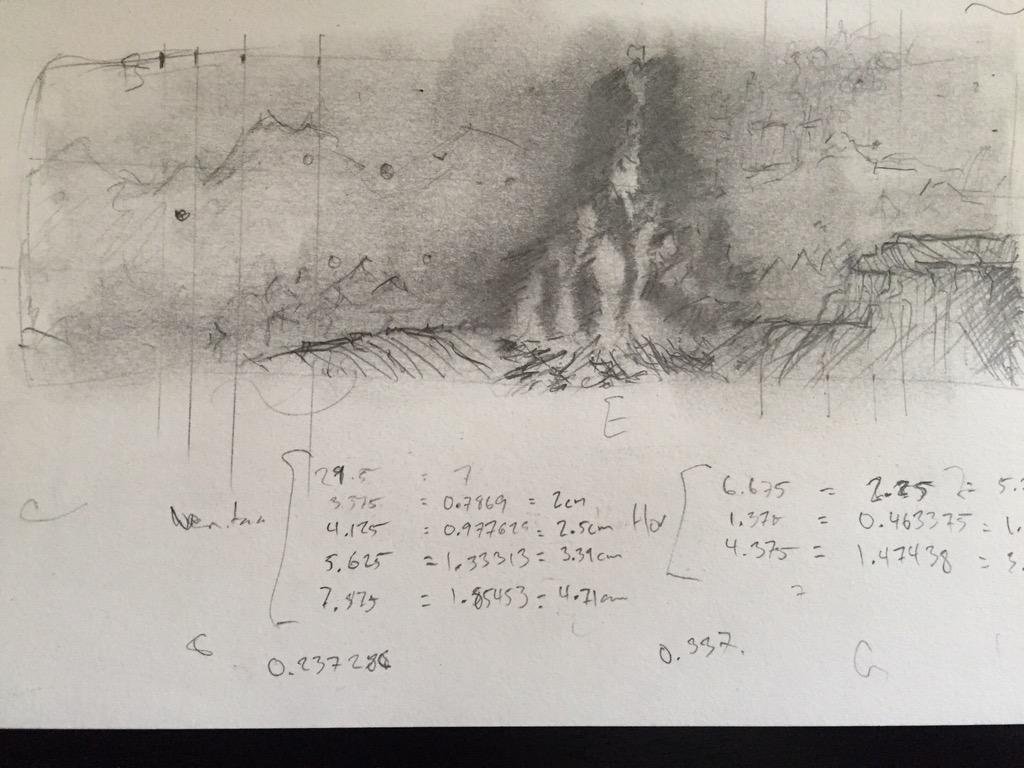 E
29.5 = 7
3.375 = 0.7869 = 2cm
4.125 = 0.977625 = 2.5cm
5.625 = 1.33313 = 3.39cm
7.875 = 1.85453 = 4.71cm
Hor
6.675 = 2.25
1.375 = 0.463375 =
4.375 = 1.47438 =
0.237286
0.337.
G